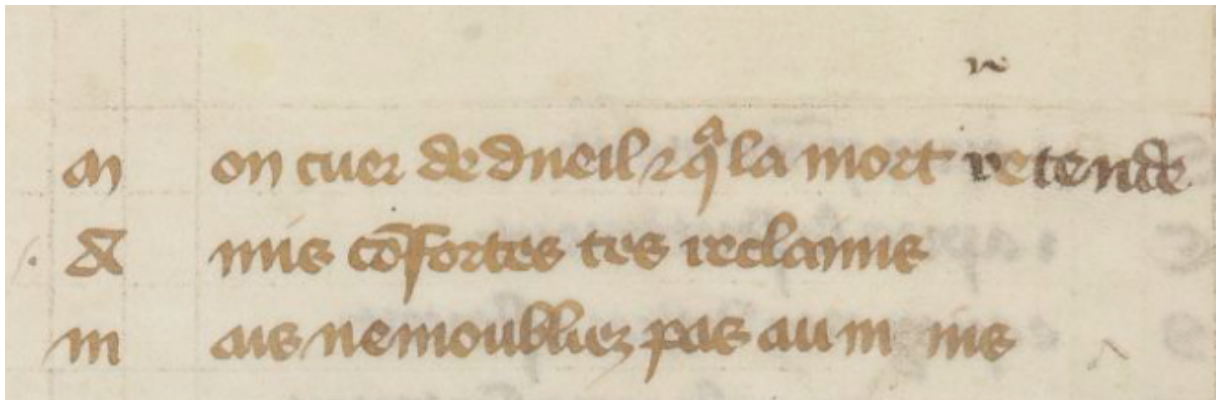 re
M on cuer de dueil ⁊ qͣ la mort ve tende
A mis cōfortes tes reclamis
M ais nemoubliez pas au m mis